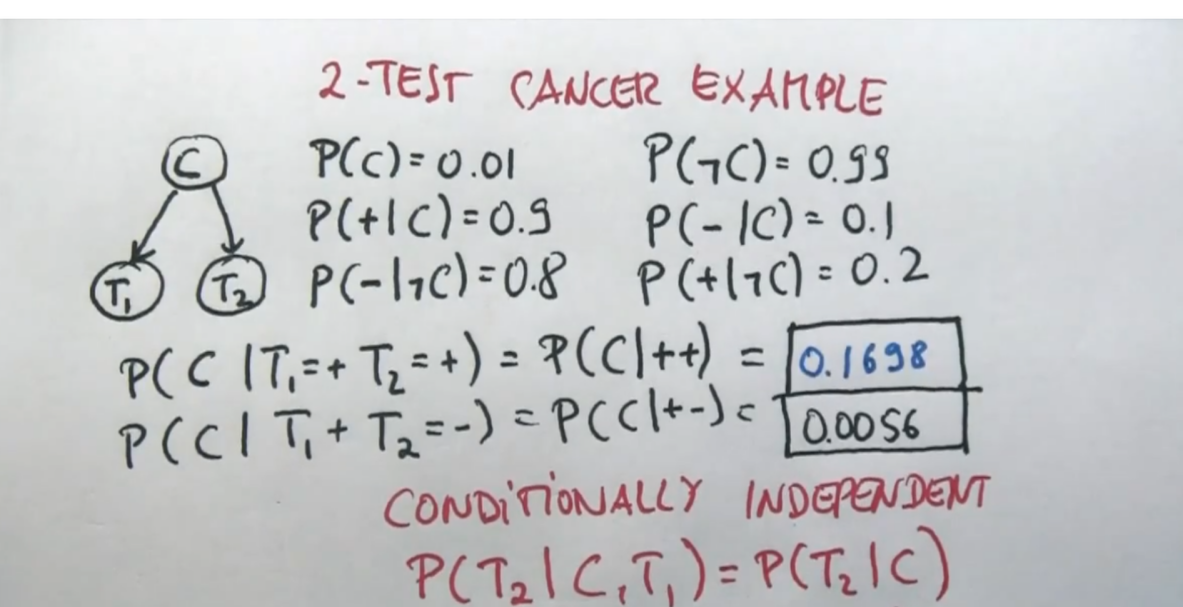 2-TEST CANCER EXAMPLE
C P(C)=0.01 P(¬C)=0.99
P(+|C)=0.9 P(-|C)=0.1
T₁ T₂ P(-|¬C)=0.8 P(+|¬C)=0.2
P(C|T₁=+ T₂=+) = P(C|++) = 0.1698
P(C|T₁+ T₂=-) = P(C|+-) = 0.0056
CONDITIONALLY INDEPENDENT
P(T₂|C,T₁)=P(T₂|C)